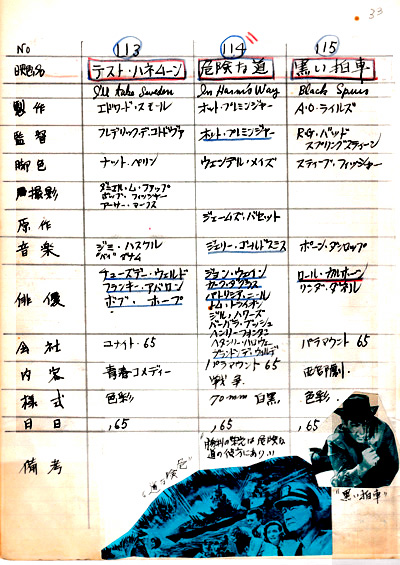 33
No 113 114 115
映画名 テスト・ハネムーン 危険な道 黒い拍車
I'll take Sweden In Harm's Way Black Spurs
製作 エドワード・スモール オットー・プレミンジャー A・C・ライルズ
監督 フレデリック・デ・コルドヴァ オットー・プレミンジャー R・G・
スプリングスティーン
脚色 ナット・ペリン ウェンデル・メイズ スティーブ・フィッシャー
撮影
原作 ジェームズ・バセット
音楽 ジミー・ハスケル ジェリー・ゴールドスミス
俳優 チューズデー・ウェルド ジョン・ウェイン ロール・カルホーン
フランキー・アバロン カーク・ダグラス リンダ・ダネル
ボブ・ホープ パトリシア・ニール
トム・トライオン
ヘンリー・フォンダ
会社 ユナイト・65 パラマウント 65 パラマウント 65
内容 青春コメディー 戦争 西部劇
様式 色彩 70mm 白黒 色彩
月日 ,65 ,65 ,65
備考 "勝利の栄光は危険な
道の彼方にあり!!
"危険な道"
"黒い拍車"